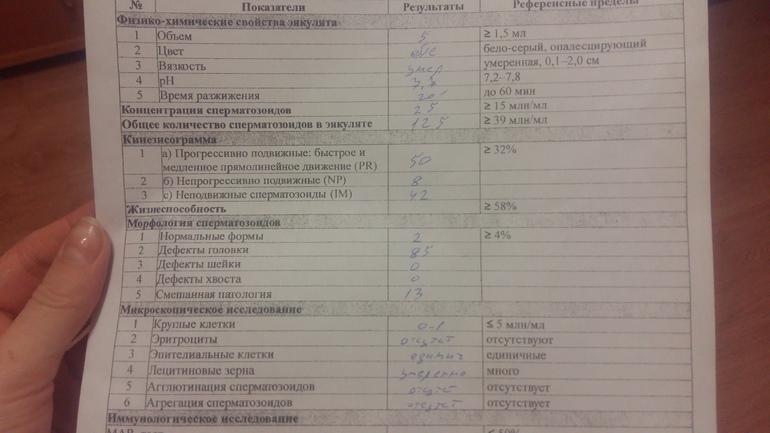 № Показатели Результаты Референсные пределы
Физико-химические свойства эякулята
1 Объем 5 ≥ 1,5 мл
2 Цвет бело-серый, опалесцирующий
3 Вязкость умер умеренная, 0,1–2,0 см
4 pH 7,7 7,2- 7,8
5 Время разжижения 20' до 60 мин
Концентрация сперматозоидов 25 ≥ 15 млн/мл
Общее количество сперматозоидов в эякуляте 125 ≥ 39 млн/мл
Кинезисограмма
1 а) Прогрессивно подвижные: быстрое и
медленное прямолинейное движение (PR) 50 ≥ 32%
2 б) Непрогрессивно подвижные (NP) 8
3 с) Неподвижные сперматозоиды (IM) 42
Жизнеспособность ≥ 58%
Морфология сперматозоидов
1 Нормальные формы 2 ≥ 4%
2 Дефекты головки 85
3 Дефекты шейки 0
4 Дефекты хвоста 0
5 Смешанная патология 13
Микроскопическое исследование
1 Круглые клетки 0-1 ≤ 5 млн/мл
2 Эритроциты отсутст отсутствуют
3 Эпителиальные клетки единич единичные
4 Лецитиновые зерна умеренно много
5 Агглютинация сперматозоидов отсутст отсутствует
6 Агрегация сперматозоидов отсутст отсутствует
Иммунологическое исследование